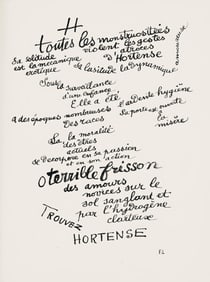 H
toutes les monstruosités
violent les gestes
atroces
d'Hortense
Sa solitude
est la mécanique
érotique
sa lassitude la dynamique
Sous la
surveillance
d'une enfance
Elle a été
à des époques nombreuses
l'ardente hygiène
des races
Sa porte est ouverte
à la
misère
Là la moralité
des êtres
actuels
se décorpore en sa passion
et en son action
O terrible frisson
des amours
novices sur le
sol sanglant et
par l'hydrogène
clarteux
TROUVEZ
HORTENSE
F.L